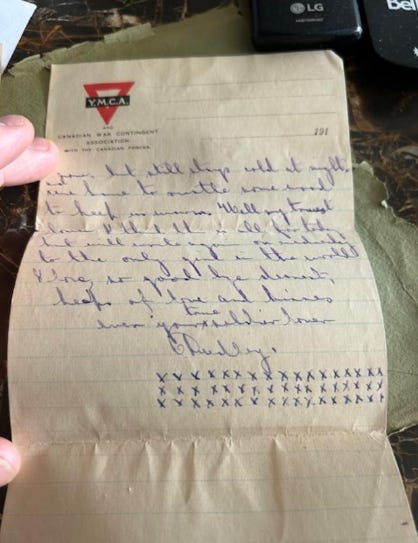 LG
bell
Y.M.C.A.
AND
CANADIAN WAR CONTINGENT
ASSOCIATION
WITH THE CANADIAN FORCES
191
now, but still stays cold at night,
have to some wood
to keep us warm. Well my sweet
that this is all for today
but will write again on
to the only girl in the world
I love, so good bye dearest,
heaps of love and kisses
true
ever your soldier lover
Dudley.
x x x x x x x x x x x x x x x x x
x x x x x x x x x x x x x x x x x
x x x x x x x x x x x x x x x x x